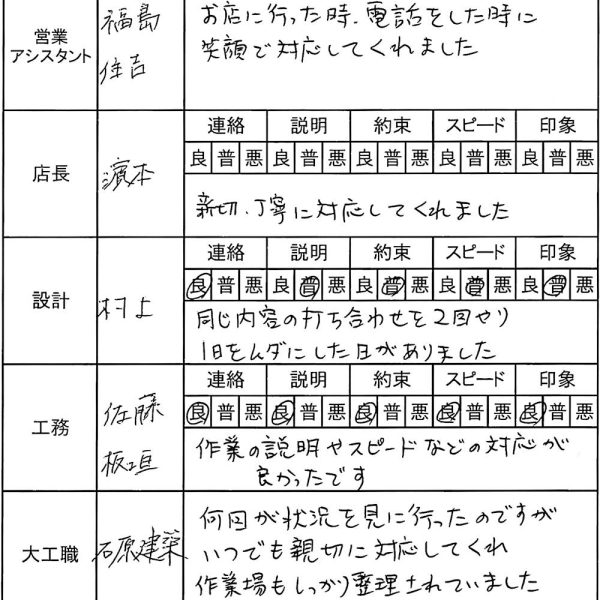 営業
アシスタント
福島
住吉
お店に行った時、電話をした時に
笑顔で対応してくれました
店長
濵本
連絡 説明 約束 スピード 印象
良 普 悪 良 普 悪 良 普 悪 良 普 悪 良 普 悪
新切、丁寧に対応してくれました
設計
村上
連絡 説明 約束 スピード 印象
良 普 悪 良 普 悪 良 普 悪 良 普 悪 良 普 悪
同じ内容の打ち合わせを2回やり
1日をムダにした日がありました
工務
佐藤
板垣
連絡 説明 約束 スピード 印象
良 普 悪 良 普 悪 良 普 悪 良 普 悪 良 普 悪
作業の説明やスピードなどの対応が
良かったです
大工職
石原建築
何回が状況を見に行ったのですが
いつでも親切に対応してくれ
作業場もしっかり整理されていました